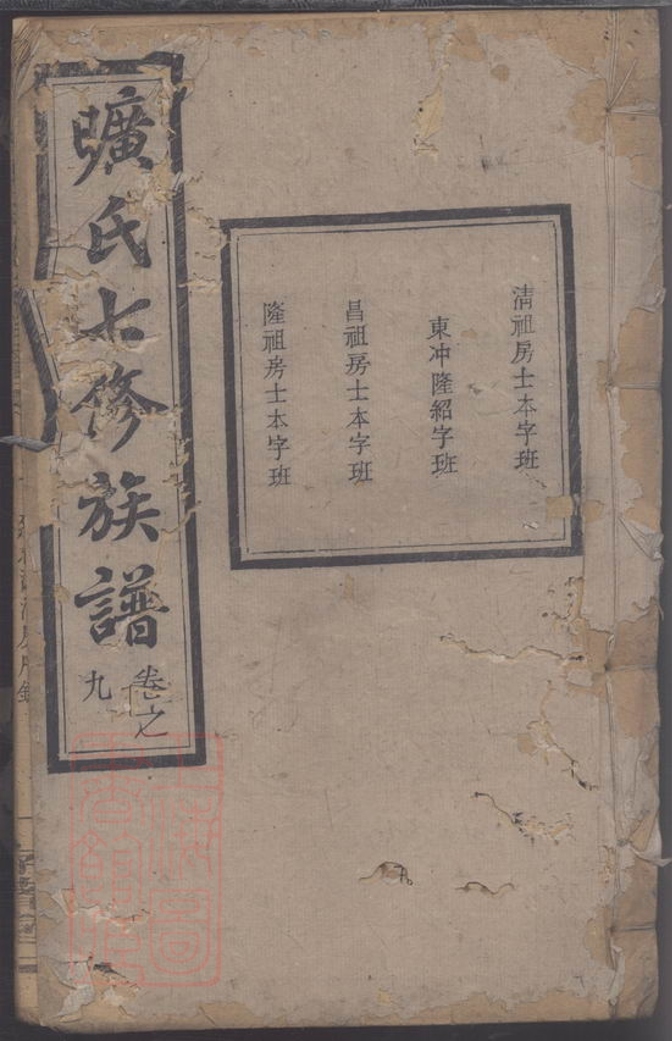 清祖房士本字班
東冲隆紹字班
昌祖房士本字班
隆祖房士本字班
曠氏七修族譜
卷之
九